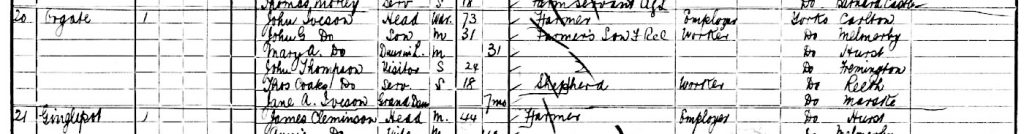 Thomas Morley Serv S 18 Farm Servant Agl Do Barnard Castle
20 Orgate 1 John Iveson Head War. 73 Farmer Employer Yorks Carlton
John G. Do Son M 31 Farmer's Son & Rel Worker Do Melmerby
Mary A. Do M 31 Do Hurst
John Thompson Visitor S 24 Do Fremington
Thos Coates Do Serv. S 18 Shepherd Worker Do Reeth
Jane A. Iveson Grand Daur 7mo Do Marske
21 Ginglepot 1 James Cleminson Head M. 44 Farmer Employer Do Hurst
Do Wife M Do Melmerby